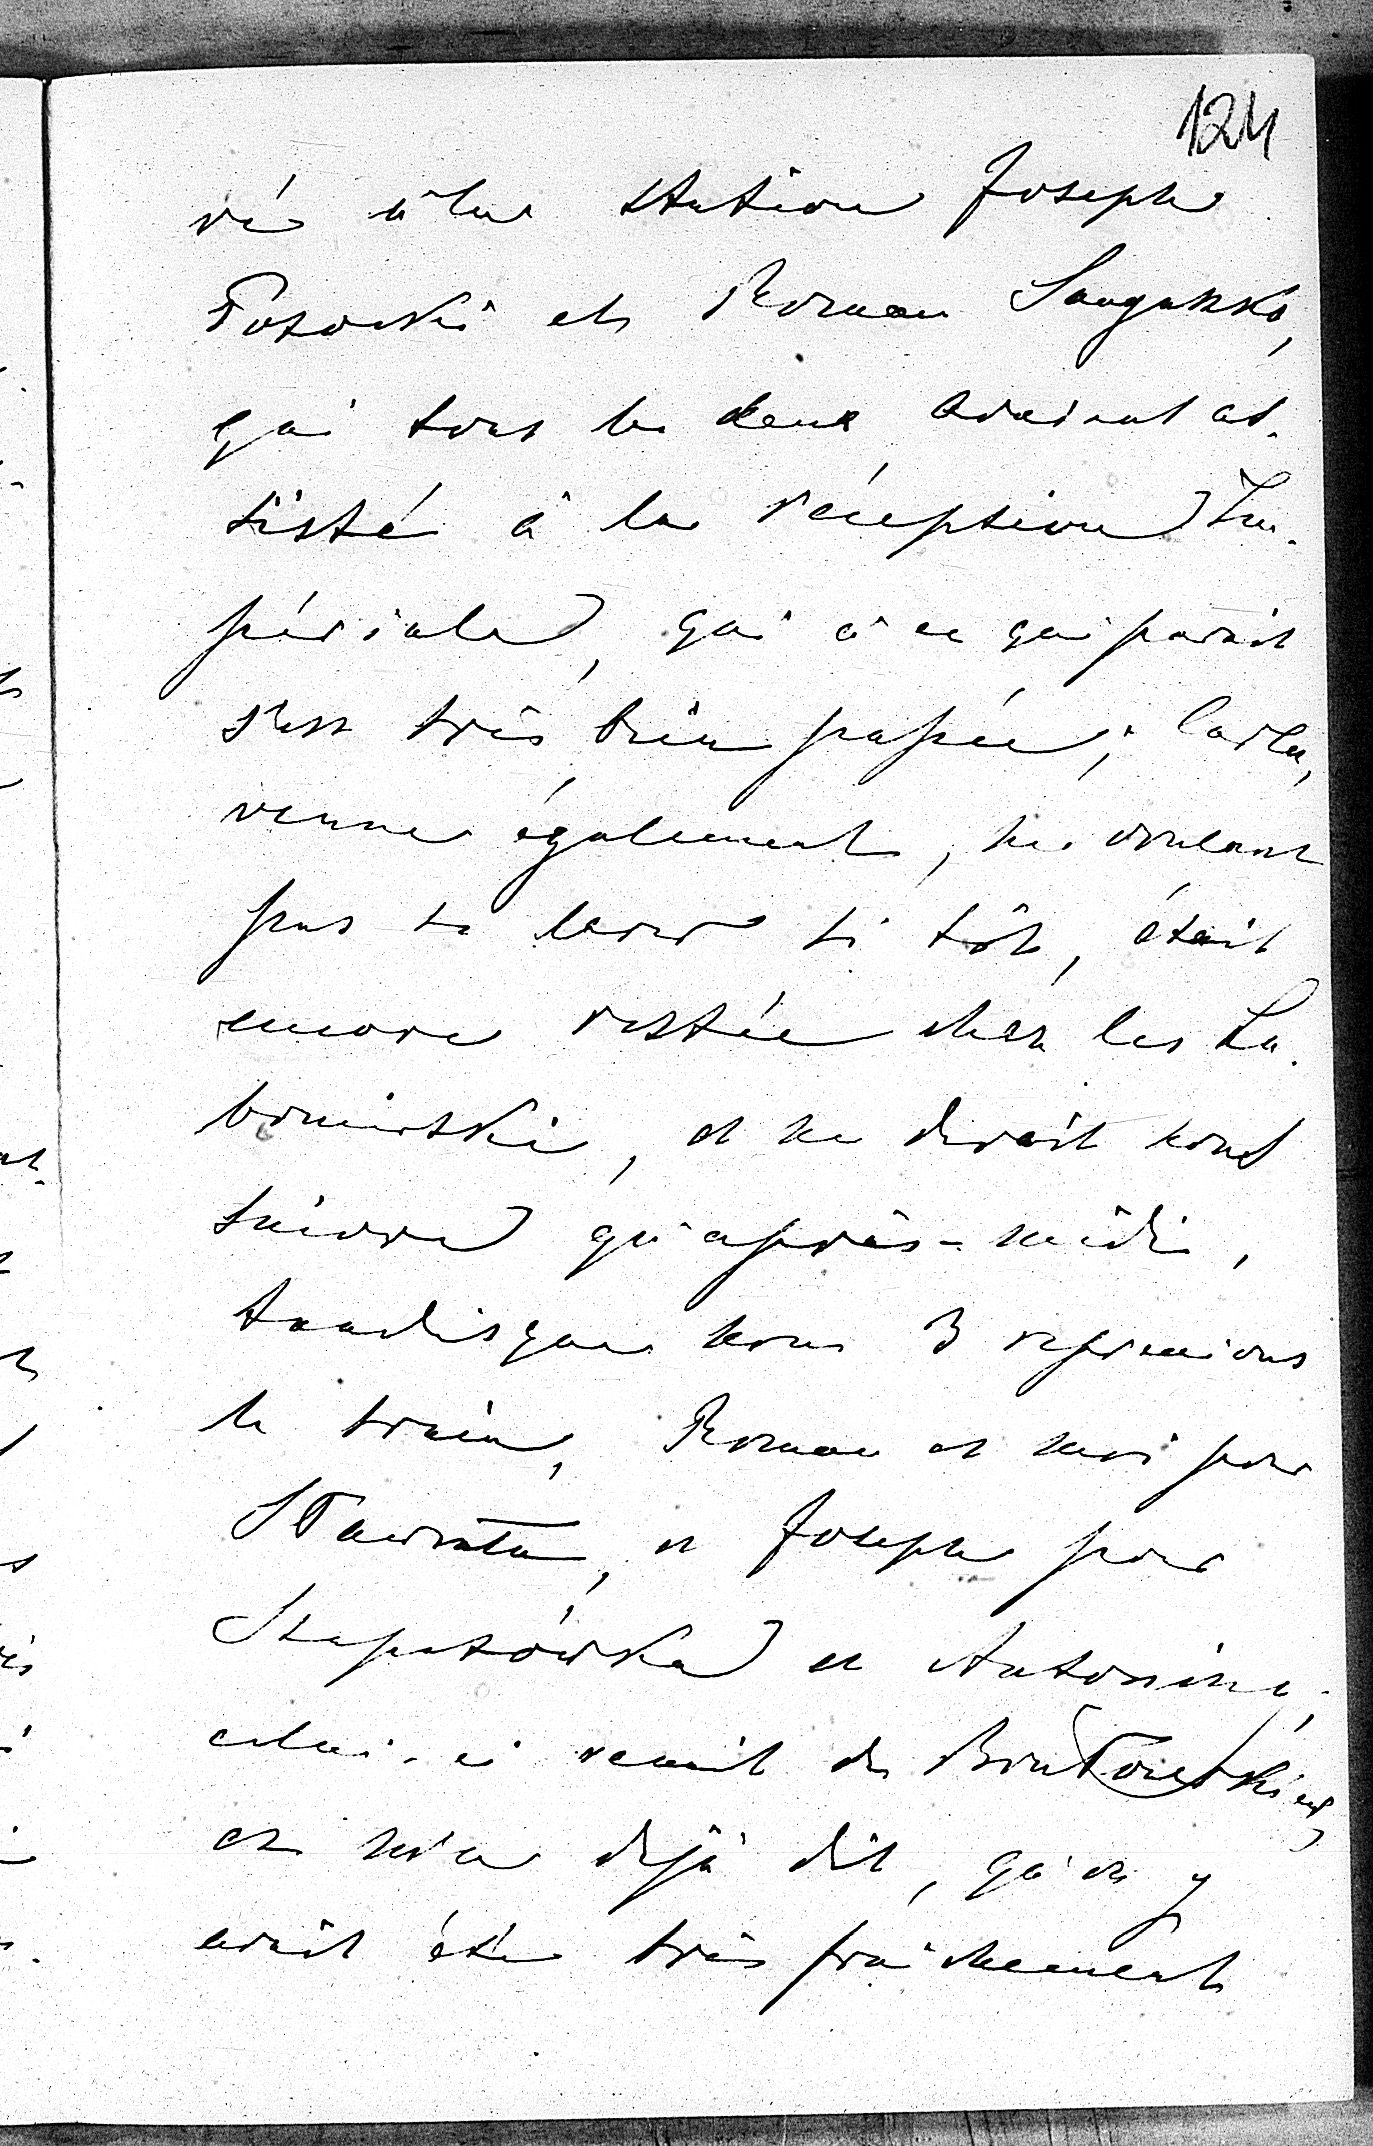 124
vé à la station Joseph
Potocki et Roman Sanguszko,
qui tous les deux avaient as-
sisté à la réception Im-
périale, qui à ce qui parait
s'est très bien passée; Carla,
venue également, ne voulant
pas se lever si tôt, était
encore restée chez les Lu-
bomirski, et ne devait nous
suivre qu'après-midi,
tandisque nous 3 reprenions
le train, Roman et moi pour
Sławuta, et Joseph pour
Szepetówka et Antoniny;
celui-ci venait de
et m'a déjà dit, qu'on y
avait été très fraichement